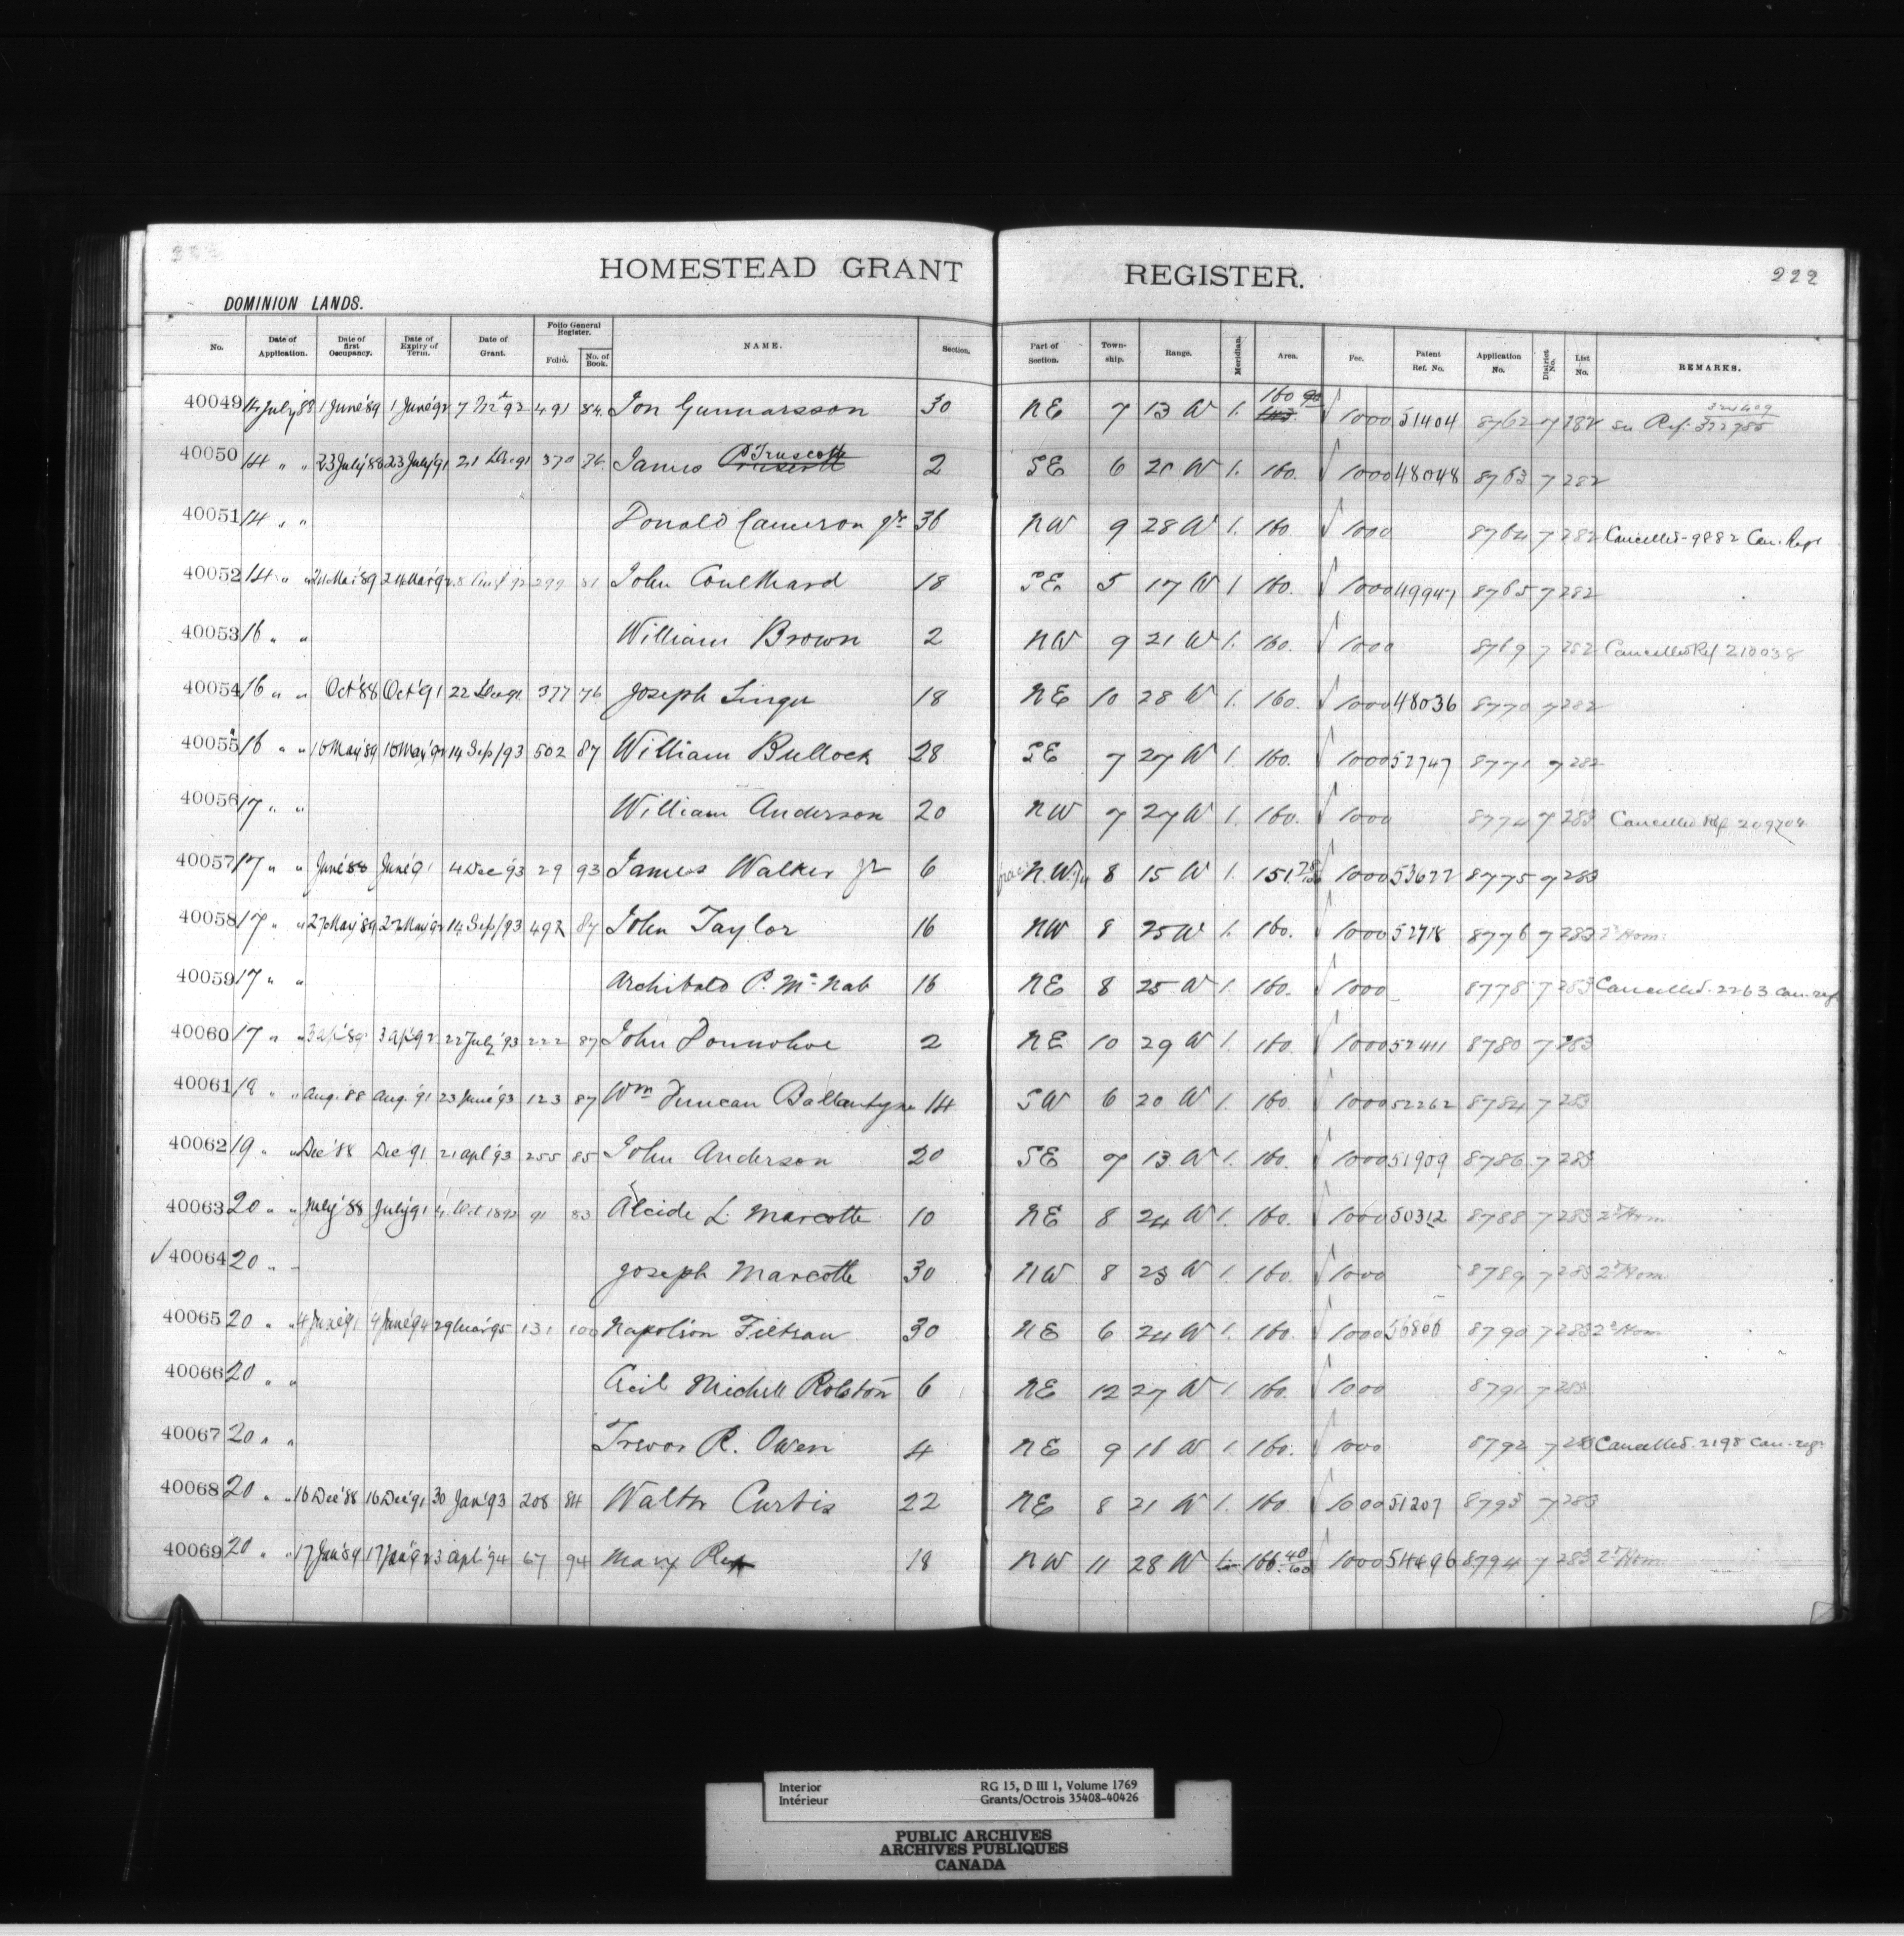 HOMESTEAD GRANT REGISTER.
222
DOMINION LANDS.
No. Date of Application. Date of first Occupancy. Date of Expiry of Term. Date of Grant. Folio General Register. Folio. No. of Book. NAME. Section. Part of Section. Town-ship. Range. Meridian. Area. Fee. Patent Ref. No. Application No. District No. List No. REMARKS.
40049 14 July '88 1 June '89 1 June '92 7 '93 491 84 Jon Gunnarsson 30 NE 7 13 W 1. 160 90 1000 51404 8762 7 282 Ref. 322785
40050 14 " " 23 July '88 23 July '91 21 Dec 91 370 76 James P Truscott 2 SE 6 20 W 1. 160. 1000 48048 8763 7 282
40051 14 " " Donald Cameron Jr. 36 NW 9 28 W 1. 160 1000 8764 7 282 Cancelled - 9882 Can. Regr
40052 14 " " 24 Mar '89 24 Mar '92 299 81 John Coulthard 18 SE 5 17 W 1 160. 1000 49947 8765 7 282
40053 16 " " William Brown 2 NW 9 21 W 1. 160. 1000 8769 7 282 Cancelled Ref 210038
40054 16 " " Oct '88 Oct '91 22 Dec 91 377 76 Joseph Singer 18 NE 10 28 W 1. 160. 1000 48036 8770 7 282
40055 16 " " 16 May '89 16 May '92 14 Sep/93 502 87 William Bullock 28 SE 7 27 W 1. 160. 1000 52747 8771 7 282
40056 17 " " William Anderson 20 NW 7 27 W 1. 160. 1000 8774 7 283 Cancelled Ref 209704
40057 17 " " June '88 June '91 4 Dec '93 29 93 James Walker Jr 6 N.W. 8 15 W 1. 151. 1000 53677 8775 7 283
40058 17 " " 27 May '89 27 May '92 14 Sep/93 492 87 John Taylor 16 NW 8 25 W 1. 160. 1000 52718 8776 7 283 2d Hom.
40059 17 " " Archibald P. McNab 16 NE 8 25 W 1. 160. 1000 8778 7 283 Cancelled. 2263 Can. regr
40060 17 " " 3 Ap '89 3 Ap '92 22 July '93 222 87 John Donnohoe 2 NE 10 29 W 1. 160. 1000 52411 8780 7 283
40061 18 " " Aug. '88 Aug. '91 23 June '93 123 87 Wm Duncan Ballantyne 14 SW 6 20 W 1. 160. 1000 52262 8784 7 283
40062 19 " " Dec '88 Dec '91 21 Apl '93 255 85 John Anderson 20 SE 7 13 W 1. 160. 1000 51909 8786 7 283
40063 20 " " July '88 July '91 4 Oct 1892 91 83 Alcide L. Marcotte 10 NE 8 24 W 1. 160. 1000 50312 8788 7 283 2d Hom.
√ 40064 20 " Joseph Marcotte 30 NW 8 23 W 1. 160. 1000 8789 7 283 2d Hom.
40065 20 " " 4 June '91 4 June '94 29 Mar '95 131 100 Napoléon 30 NE 6 24 W 1. 160. 1000 56806 8790 7 283 2d Hom
40066 20 " " Michell Rolston 6 NE 12 27 W 1. 160. 1000 8791 7 283
40067 20 " " Trevor R. Owen 4 NE 9 16 W 1. 160. 1000 8792 7 283 Cancelled. 2198 Can. regr
40068 20 " " 16 Dec '88 16 Dec '91 30 Jan '93 208 84 Walter Curtis 22 NE 8 21 W 1. 160. 1000 51207 8793 7 283
40069 20 " " 17 Jan '89 17 Jan '92 3 Apl '94 67 94 Marx 18 NW 11 28 W 1. 166. 1000 54496 8794 7 283 2d Hom.
Interior RG 15, D III 1, Volume 1769
Intérieur Grants/Octrois 35408-40426
PUBLIC ARCHIVES
ARCHIVES PUBLIQUES
CANADA